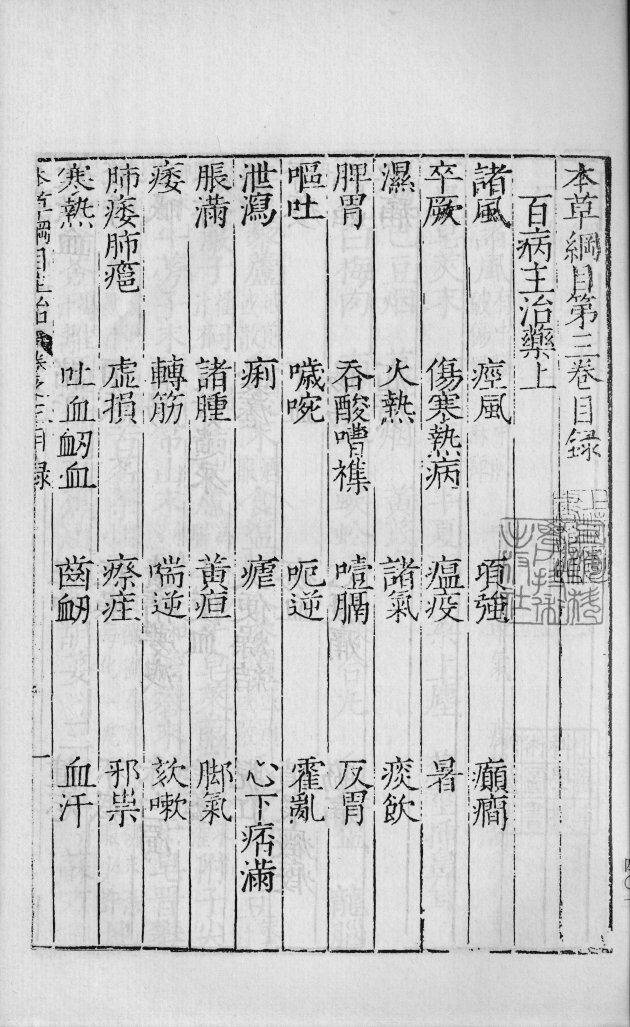 本草綱目第三卷目録
百病主治藥上
諸風 痙風 項強 癲癇
卒厥 傷寒熱病 瘟疫 暑
濕 火熱 諸氣 痰飲
脾胃 吞酸嘈襍 噎膈 反胃
嘔吐 噦啘 呃逆 霍亂
泄瀉 痢 瘧 心下痞滿
脹滿 諸腫 黃疸 脚氣
痿 轉筋 喘逆 欬嗽
肺痿肺癰 虛損 瘵疰 邪祟
寒熱 吐血衂血 齒衂 血汗
本草綱目主治 卷之三目録 一